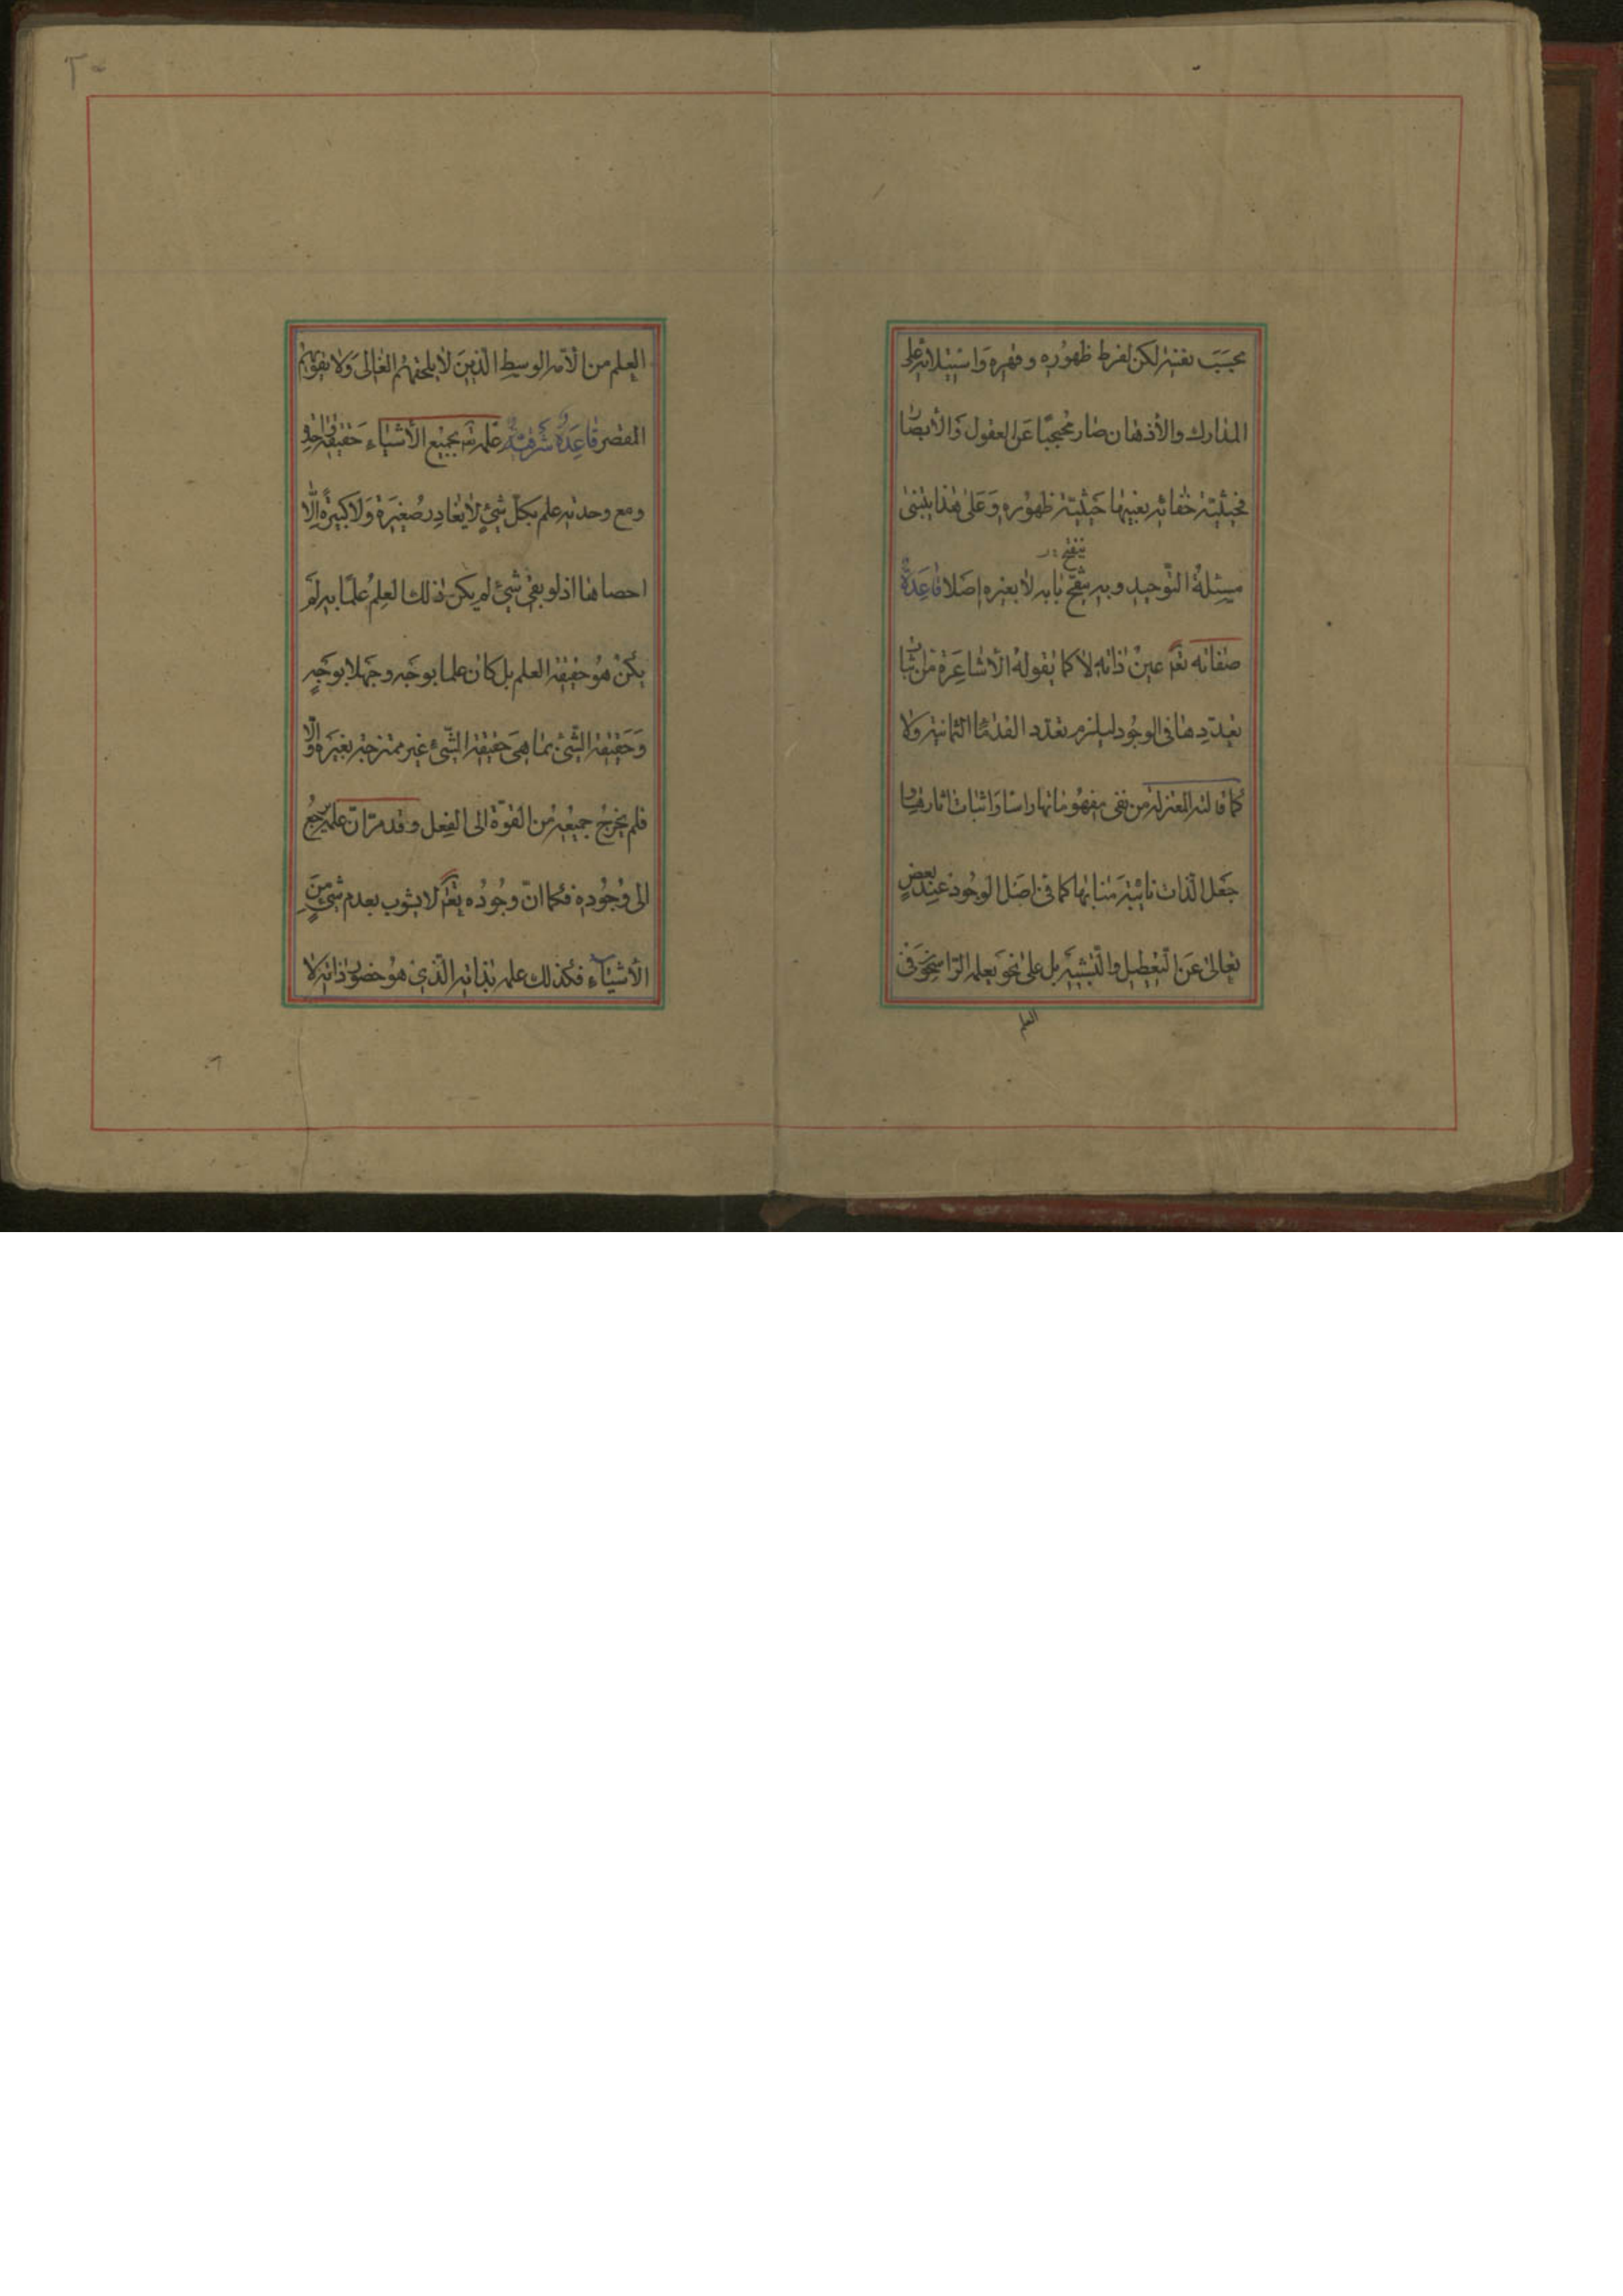 بحسب نفسه لكن لفرط ظهوره و قهره و استيلائه على
المدارك والأذهان صار محتجبًا عن العقول و الأبصار
فحيثيّة خفائه بعينها حيثيّة ظهوره و على هذا يبتنى
ينفتح
مسئلة التّوحيد و به ينفتح بابه لا بغيره اصلا قاعدة
صفاته تعالى عين ذاته لا كما يقوله الأشاعرة من اثبات
تعدّدها فى الوجود ليلزم تعدّد القدماء الثمانية ولا
كما قالته المعتزلة من نفى مفهوماتها راسًا و اثبات آثارها و
جعل الذات نائبة منابها كما فى اصل الوجود عند بعض
تعالى عن التّعطيل والتّشبيه بل على نحو يعلمه الرّاسخون فى
العلم
٢٠
العلم من الأمّة الوسط الّذين لا يلحقهم الغالى ولا يفوتهم
المقصر قاعدة مشرقيّة علمه تعالى بجميع الأشياء حقيقة واحدة
و مع وحدته علم بكلّ شئ لا يغادر صغيرة ولا كبيرة إلّا
احصاها اذ لو بقى شئ لم يكن ذلك العلم علمًا به لم
يكن هو حقيقة العلم بل كان علما بوجه و جهلا بوجه
و حقيقة الشّئ بما هى حقيقة الشّئ غير ممتزجة بغيره و الّا
فلم يخرج جميعه من القوّة الى الفعل و قد مرّ انّ علمه يرجع
الى وجوده فكما انّ وجوده تعالى لا يشوب بعدم شئ من
الأشياء فكذلك علمه بذاته الّذى هو حضور ذاته لا